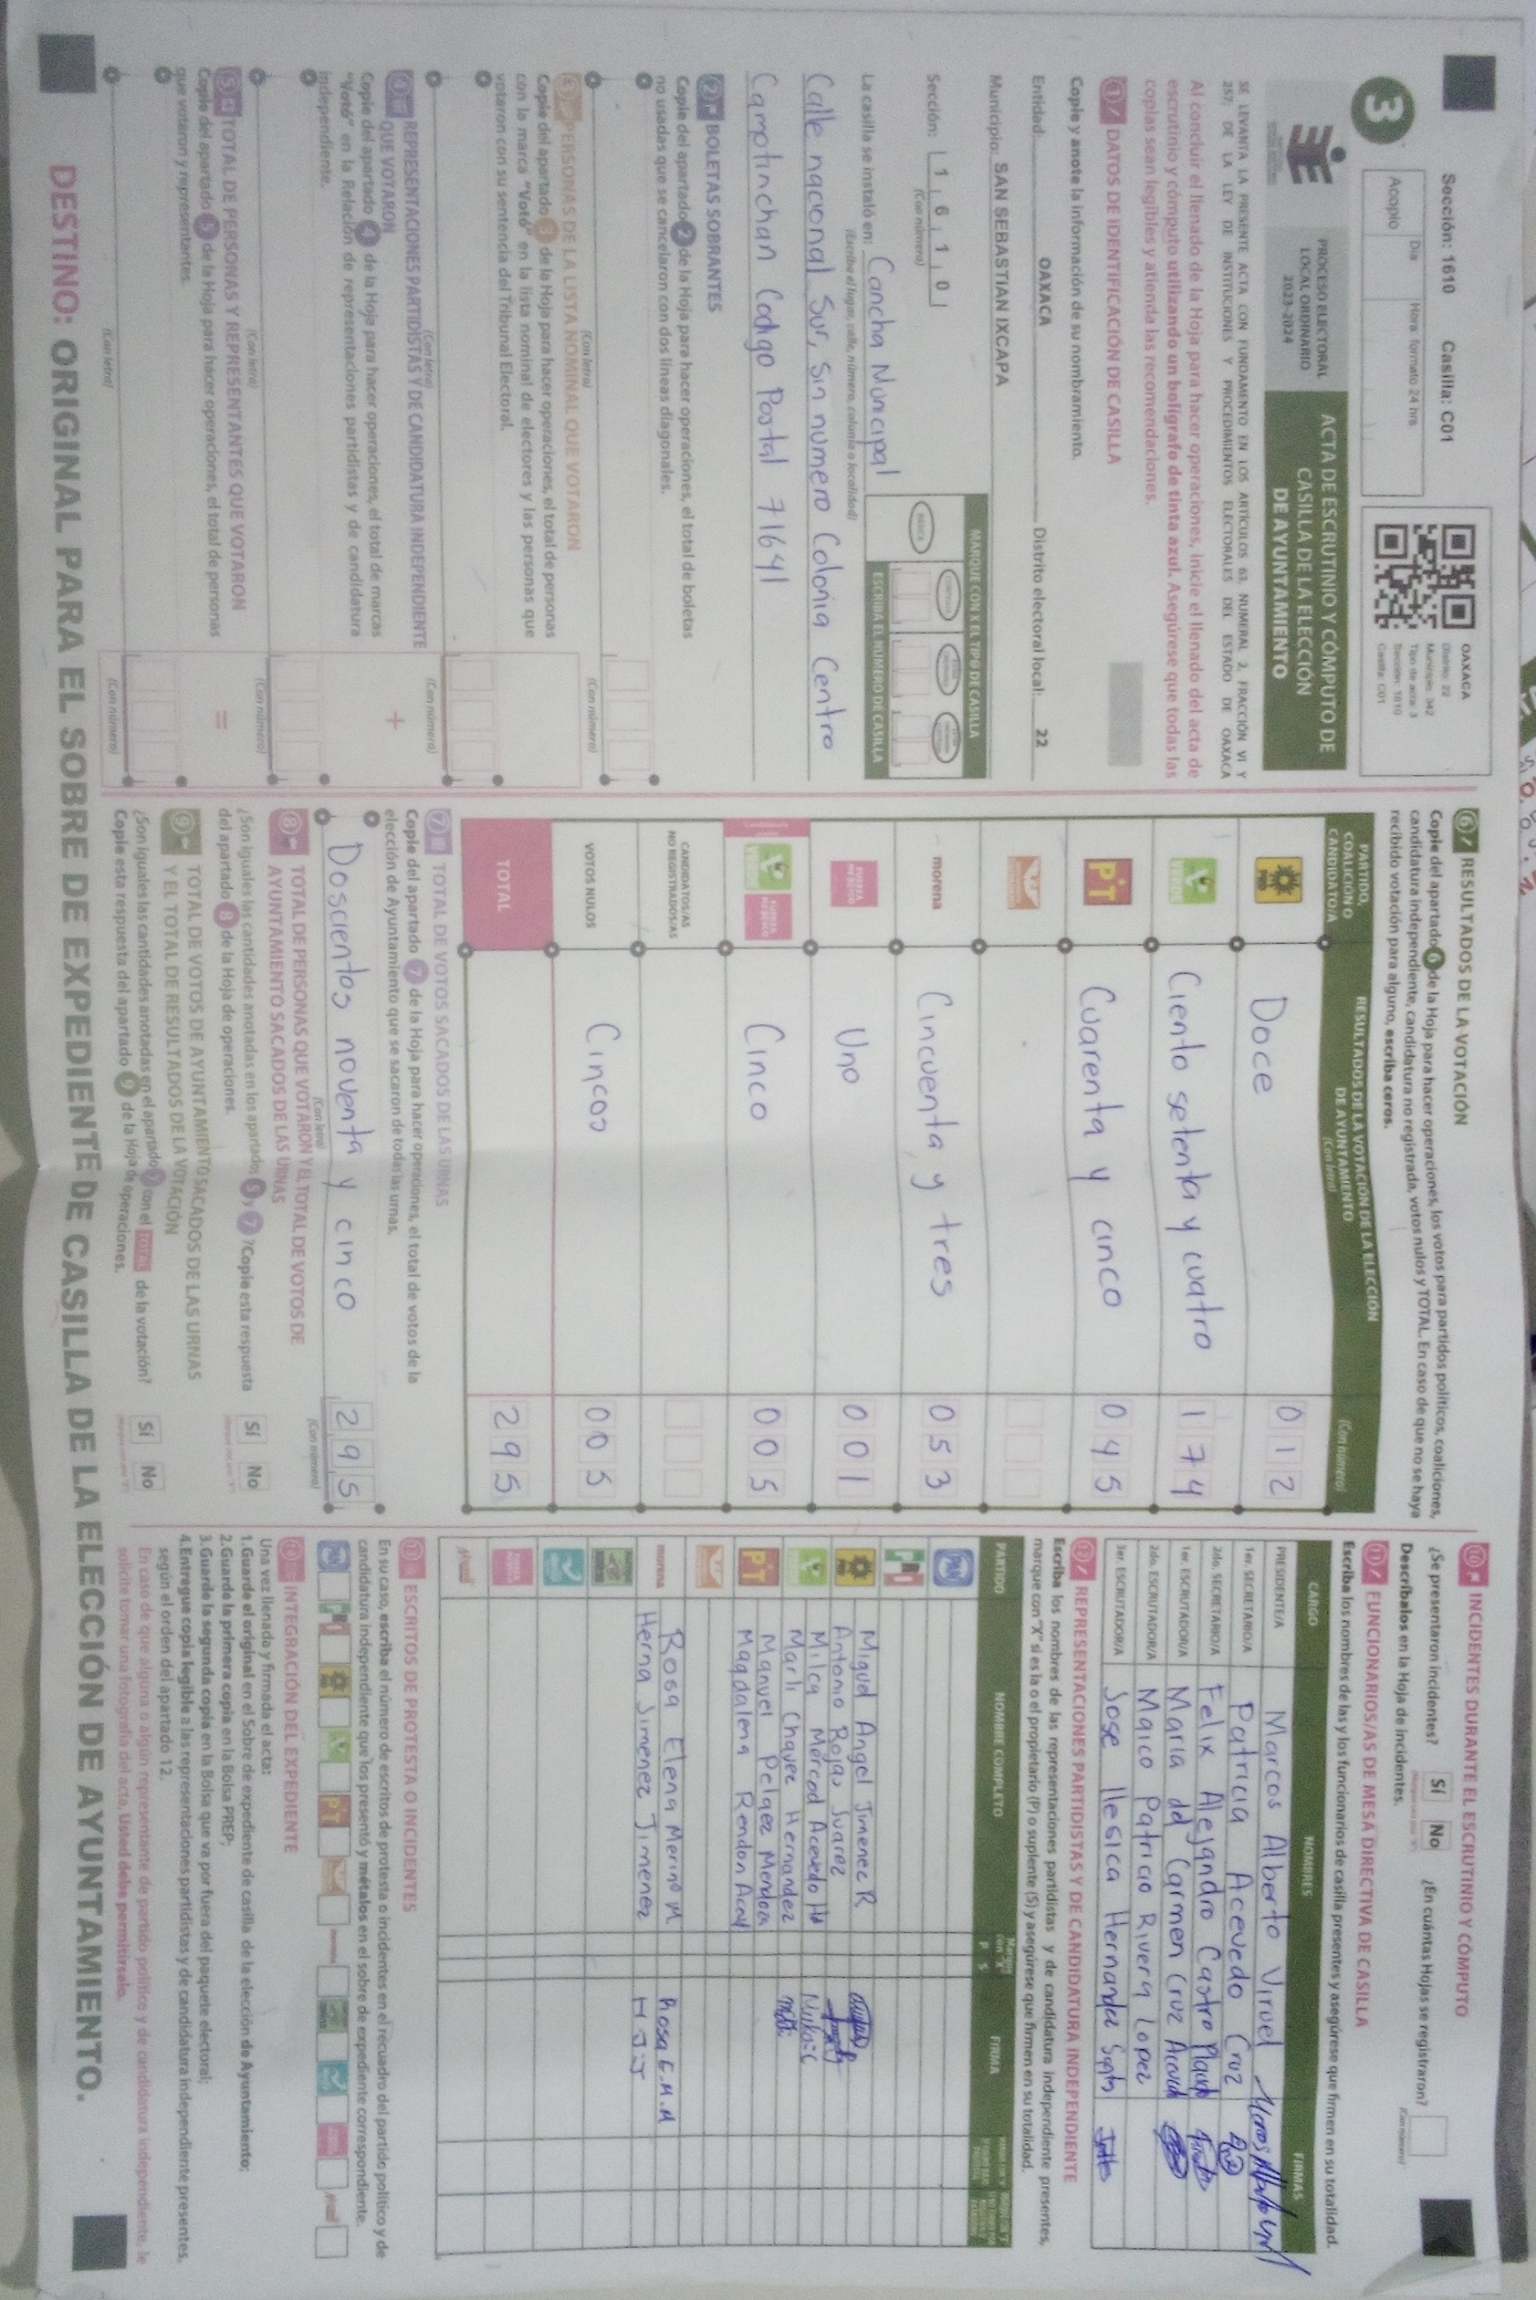 Sección: 1610 Casilla: C01
Acopio
Día
Hora: formato 24 hrs
OAXACA
Distrito: 22
Municipio: 342
Tipo de acta: 3
Sección: 1610
Casilla: C01
3
PROCESO ELECTORAL
LOCAL ORDINARIO
2023-2024
ACTA DE ESCRUTINIO Y CÓMPUTO DE
CASILLA DE LA ELECCIÓN
DE AYUNTAMIENTO
SE LEVANTA LA PRESENTE ACTA CON FUNDAMENTO EN LOS ARTÍCULOS 63, NUMERAL 2, FRACCIÓN VI Y
257, DE LA LEY DE INSTITUCIONES Y PROCEDIMIENTOS ELECTORALES DEL ESTADO DE OAXACA
Al concluir el llenado de la Hoja para hacer operaciones, inicie el llenado del acta de
escrutinio y cómputo utilizando un bolígrafo de tinta azul. Asegúrese que todas las
copias sean legibles y atienda las recomendaciones.
1 DATOS DE IDENTIFICACIÓN DE CASILLA
Copie y anote la información de su nombramiento.
Entidad: OAXACA Distrito electoral local: 22
Municipio: SAN SEBASTIAN IXCAPA
Sección: 1 6 1 0
(Con número)
MARQUE CON X EL TIPO DE CASILLA
ESCRIBA EL NÚMERO DE CASILLA
La casilla se instaló en: Cancha Municipal
(Escriba el lugar, calle, número, colonia o localidad)
Calle nacional Sur, sin numero Colonia Centro
Camotinchan Codigo Postal 71641
2 BOLETAS SOBRANTES
Copie del apartado 2 de la Hoja para hacer operaciones, el total de boletas
no usadas que se cancelaron con dos líneas diagonales.
(Con letra) (Con número)
3 PERSONAS DE LA LISTA NOMINAL QUE VOTARON
Copie del apartado 3 de la Hoja para hacer operaciones, el total de personas
con la marca "Votó" en la lista nominal de electores y las personas que
votaron con su sentencia del Tribunal Electoral.
(Con letra) (Con número)
4 REPRESENTACIONES PARTIDISTAS Y DE CANDIDATURA INDEPENDIENTE
QUE VOTARON
Copie del apartado 4 de la Hoja para hacer operaciones, el total de marcas
"Votó" en la Relación de representaciones partidistas y de candidatura
independiente.
+
(Con letra) (Con número)
5 TOTAL DE PERSONAS Y REPRESENTANTES QUE VOTARON
Copie del apartado 5 de la Hoja para hacer operaciones, el total de personas
que votaron y representantes.
=
(Con letra) (Con número)
6 RESULTADOS DE LA VOTACIÓN
Copie del apartado 6 de la Hoja para hacer operaciones, los votos para partidos políticos, coaliciones,
candidatura independiente, candidatura no registrada, votos nulos y TOTAL. En caso de que no se haya
recibido votación para alguno, escriba ceros.
PARTIDO,
COALICIÓN O
CANDIDATO/A
RESULTADOS DE LA VOTACIÓN DE LA ELECCIÓN
DE AYUNTAMIENTO
(Con letra)
(Con número)
PRD Doce 012
VERDE Ciento setenta y cuatro 174
PT Cuarenta y cinco 045
morena Cincuenta y tres 053
FUERZA MÉXICO Uno 001
VERDE FUERZA MÉXICO Cinco 005
CANDIDATOS/AS
NO REGISTRADOS/AS
VOTOS NULOS Cincoo 005
TOTAL 295
7 TOTAL DE VOTOS SACADOS DE LAS URNAS
Copie del apartado 7 de la Hoja para hacer operaciones, el total de votos de la
elección de Ayuntamiento que se sacaron de todas las urnas.
Doscientos noventa y cinco 295
(Con letra) (Con número)
8 TOTAL DE PERSONAS QUE VOTARON Y EL TOTAL DE VOTOS DE
AYUNTAMIENTO SACADOS DE LAS URNAS
¿Son iguales las cantidades anotadas en los apartados 5 y 7? Copie esta respuesta
del apartado 8 de la Hoja de operaciones.
Sí No
9 TOTAL DE VOTOS DE AYUNTAMIENTO SACADOS DE LAS URNAS
Y EL TOTAL DE RESULTADOS DE LA VOTACIÓN
¿Son iguales las cantidades anotadas en el apartado 7 con el TOTAL de la votación?
Copie esta respuesta del apartado 9 de la Hoja de operaciones.
Sí No
10 INCIDENTES DURANTE EL ESCRUTINIO Y CÓMPUTO
¿Se presentaron incidentes? Sí No ¿En cuántas Hojas se registraron?
(Con número)
Descríbalos en la Hoja de incidentes.
11 FUNCIONARIOS/AS DE MESA DIRECTIVA DE CASILLA
Escriba los nombres de las y los funcionarios de casilla presentes y asegúrese que firmen en su totalidad.
CARGO NOMBRES FIRMAS
PRESIDENTE/A Marcos Alberto Viruel
1er. SECRETARIO/A Patricia Acevedo Cruz
2do. SECRETARIO/A Felix Alejandro Castro
1er. ESCRUTADOR/A Maria del Carmen Cruz
2do. ESCRUTADOR/A Maico Patricio Rivera Lopez
3er. ESCRUTADOR/A Jose Ilesica Hernandez
12 REPRESENTACIONES PARTIDISTAS Y DE CANDIDATURA INDEPENDIENTE
Escriba los nombres de las representaciones partidistas y de candidatura independiente presentes,
marque con "X" si es la o el propietario (P) o suplente (S) y asegúrese que firmen en su totalidad.
PARTIDO NOMBRE COMPLETO P S FIRMA
PAN
PRI
PRD Miguel Angel Jimenez R
Antonio Rojas Juarez
VERDE Milca Merced Acevedo
Marli Chavez Hernandez
PT Manuel Pelaez Mendoza
Magdalena Rendon
morena Rosa Elena Merino M Rosa E.M.M
Herna Jimenez Jimenez H J J
13 ESCRITOS DE PROTESTA O INCIDENTES
En su caso, escriba el número de escritos de protesta o incidentes en el recuadro del partido político y de
candidatura independiente que los presentó y métalos en el sobre de expediente correspondiente.
14 INTEGRACIÓN DEL EXPEDIENTE
Una vez llenada y firmada el acta:
1. Guarde el original en el Sobre de expediente de casilla de la elección de Ayuntamiento;
2. Guarde la primera copia en la Bolsa PREP;
3. Guarde la segunda copia en la Bolsa que va por fuera del paquete electoral;
4. Entregue copia legible a las representaciones partidistas y de candidatura independiente presentes,
según el orden del apartado 12.
En caso de que alguna o algún representante de partido político y de candidatura independiente, le
solicite tomar una fotografía del acta, Usted debe permitírselo.
DESTINO: ORIGINAL PARA EL SOBRE DE EXPEDIENTE DE CASILLA DE LA ELECCIÓN DE AYUNTAMIENTO.